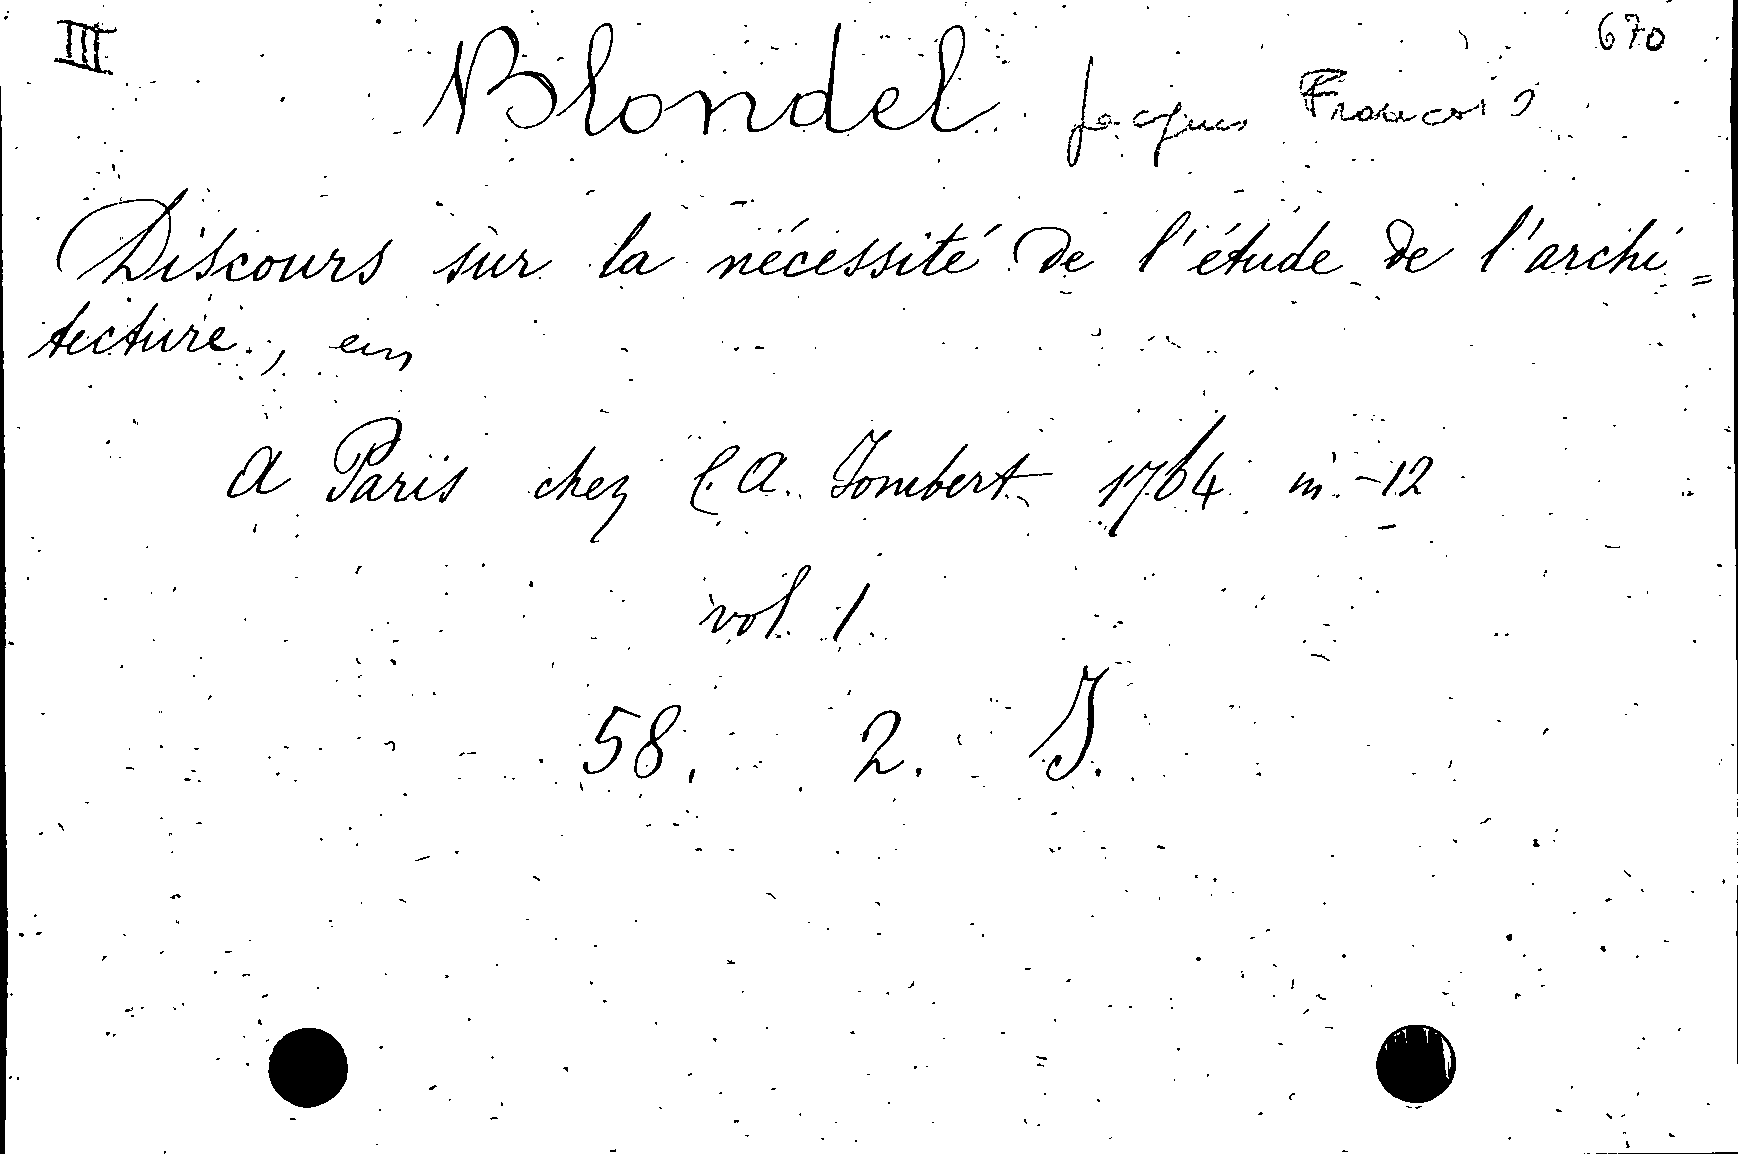 III 670
Blondel Jacques François
Discours sur la nécessité de l'étude de l'archi=
tecture,
A Paris chez C. A. Jombert 1764 in-12
vol. 1.
58. 2. J.